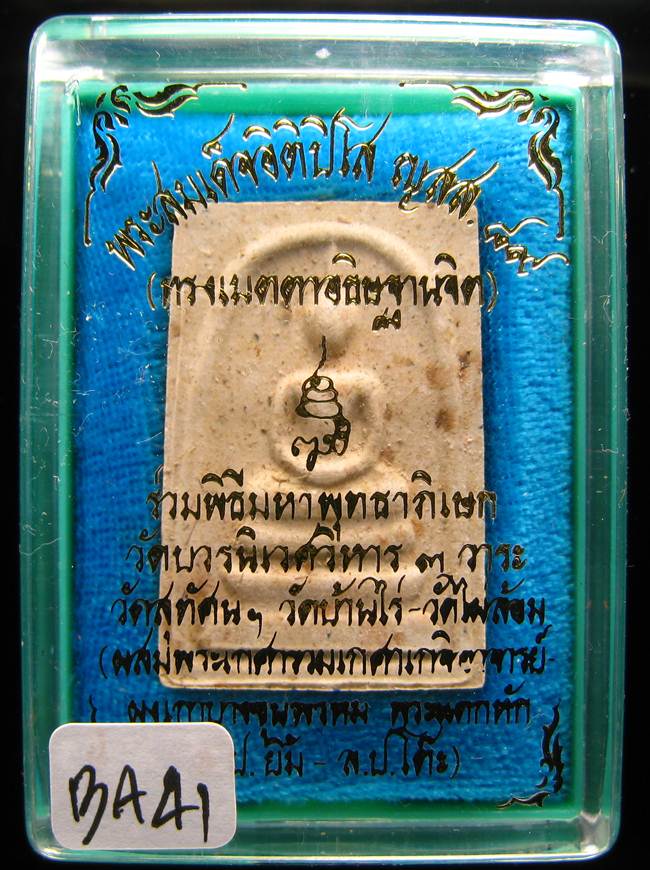 พระสมเด็จอิติปิโส ญสส. ๙๙
(ทรงเมตตาอธิษฐานจิต)
ร่วมพิธีมหาพุทธาภิเษก
วัดบวรนิเวศวิหาร ๓ วาระ
วัดสุทัศน์ฯ วัดบ้านไร่-วัดไผ่ล้อม
(ผสมพระเกศารวมเกศาเกจิอาจารย์-
ผงเก่าบางขุนพรหม พระแตกหัก
ป. ยิ้ม - ล.ป.โต๊ะ)
BA41